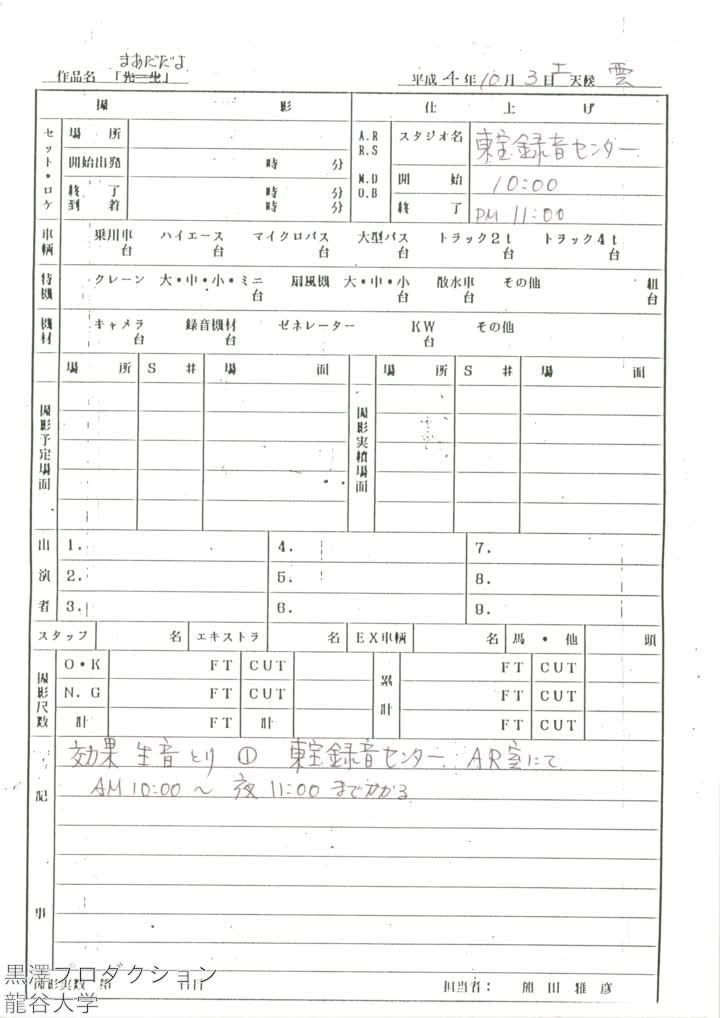 まあだだよ
作品名 「先生」 平成4年10月3日土天候 雲
撮 影 仕 上 げ
セット・ロケ 場 所 A.R R.S スタジオ名 東宝録音センター
開始出発 時 分 M.D O.B 開 始 10:00
終 了 到 着 時 分 時 分 終 了 PM 11:00
車輌 乗用車 台 ハイエース 台 マイクロバス 台 大型バス 台 トラック2t 台 トラック4t 台
特機 クレーン 大・中・小・ミニ 台 扇風機 大・中・小 台 散水車 台 その他 組 台
機材 キャメラ 台 録音機材 台 ゼネレーター KW 台 その他
撮影予定場面 場 所 S # 場 面 撮影実績場面 場 所 S # 場 面
出演者 1. 4. 7.
2. 5. 8.
3. 6. 9.
スタッフ 名 エキストラ 名 EX車輌 名 馬・他 頭
撮影尺数 O・K FT CUT 累計 FT CUT
N.G FT CUT FT CUT
計 FT 計 FT CUT
記事 効果 生音とり ① 東宝録音センター AR室にて
AM 10:00 ～ 夜 11:00 までかかる
担当者： 熊田雅彦
黒澤プロダクション
龍谷大学